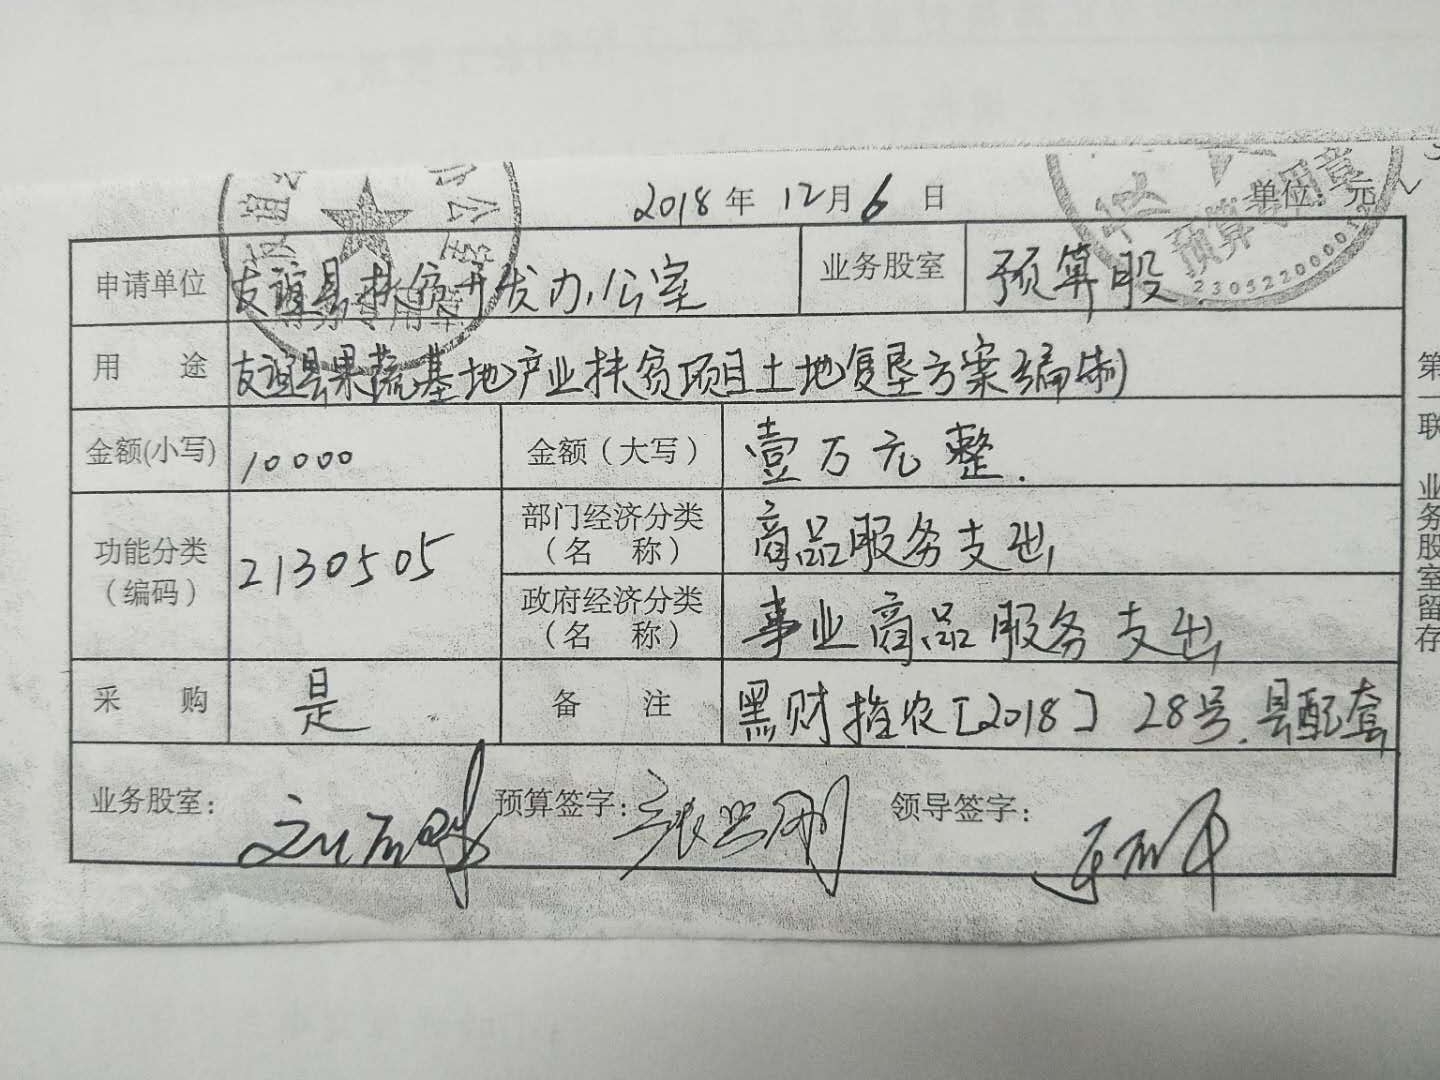 2018年 12月6日 单位：元
申请单位 友谊县扶贫开发办公室 业务股室 预算股
用 途 友谊县果蔬基地产业扶贫项目土地复垦方案编制
金额(小写) 10000 金额（大写） 壹万元整.
功能分类（编码） 2130505 部门经济分类（名 称） 商品服务支出
政府经济分类（名 称） 事业商品服务支出
采 购 是 备 注 黑财指农[2018] 28号.县配套
业务股室： 预算签字：张兴刚 领导签字：
第一联 业务股室留存
预算专用章
2305220000012